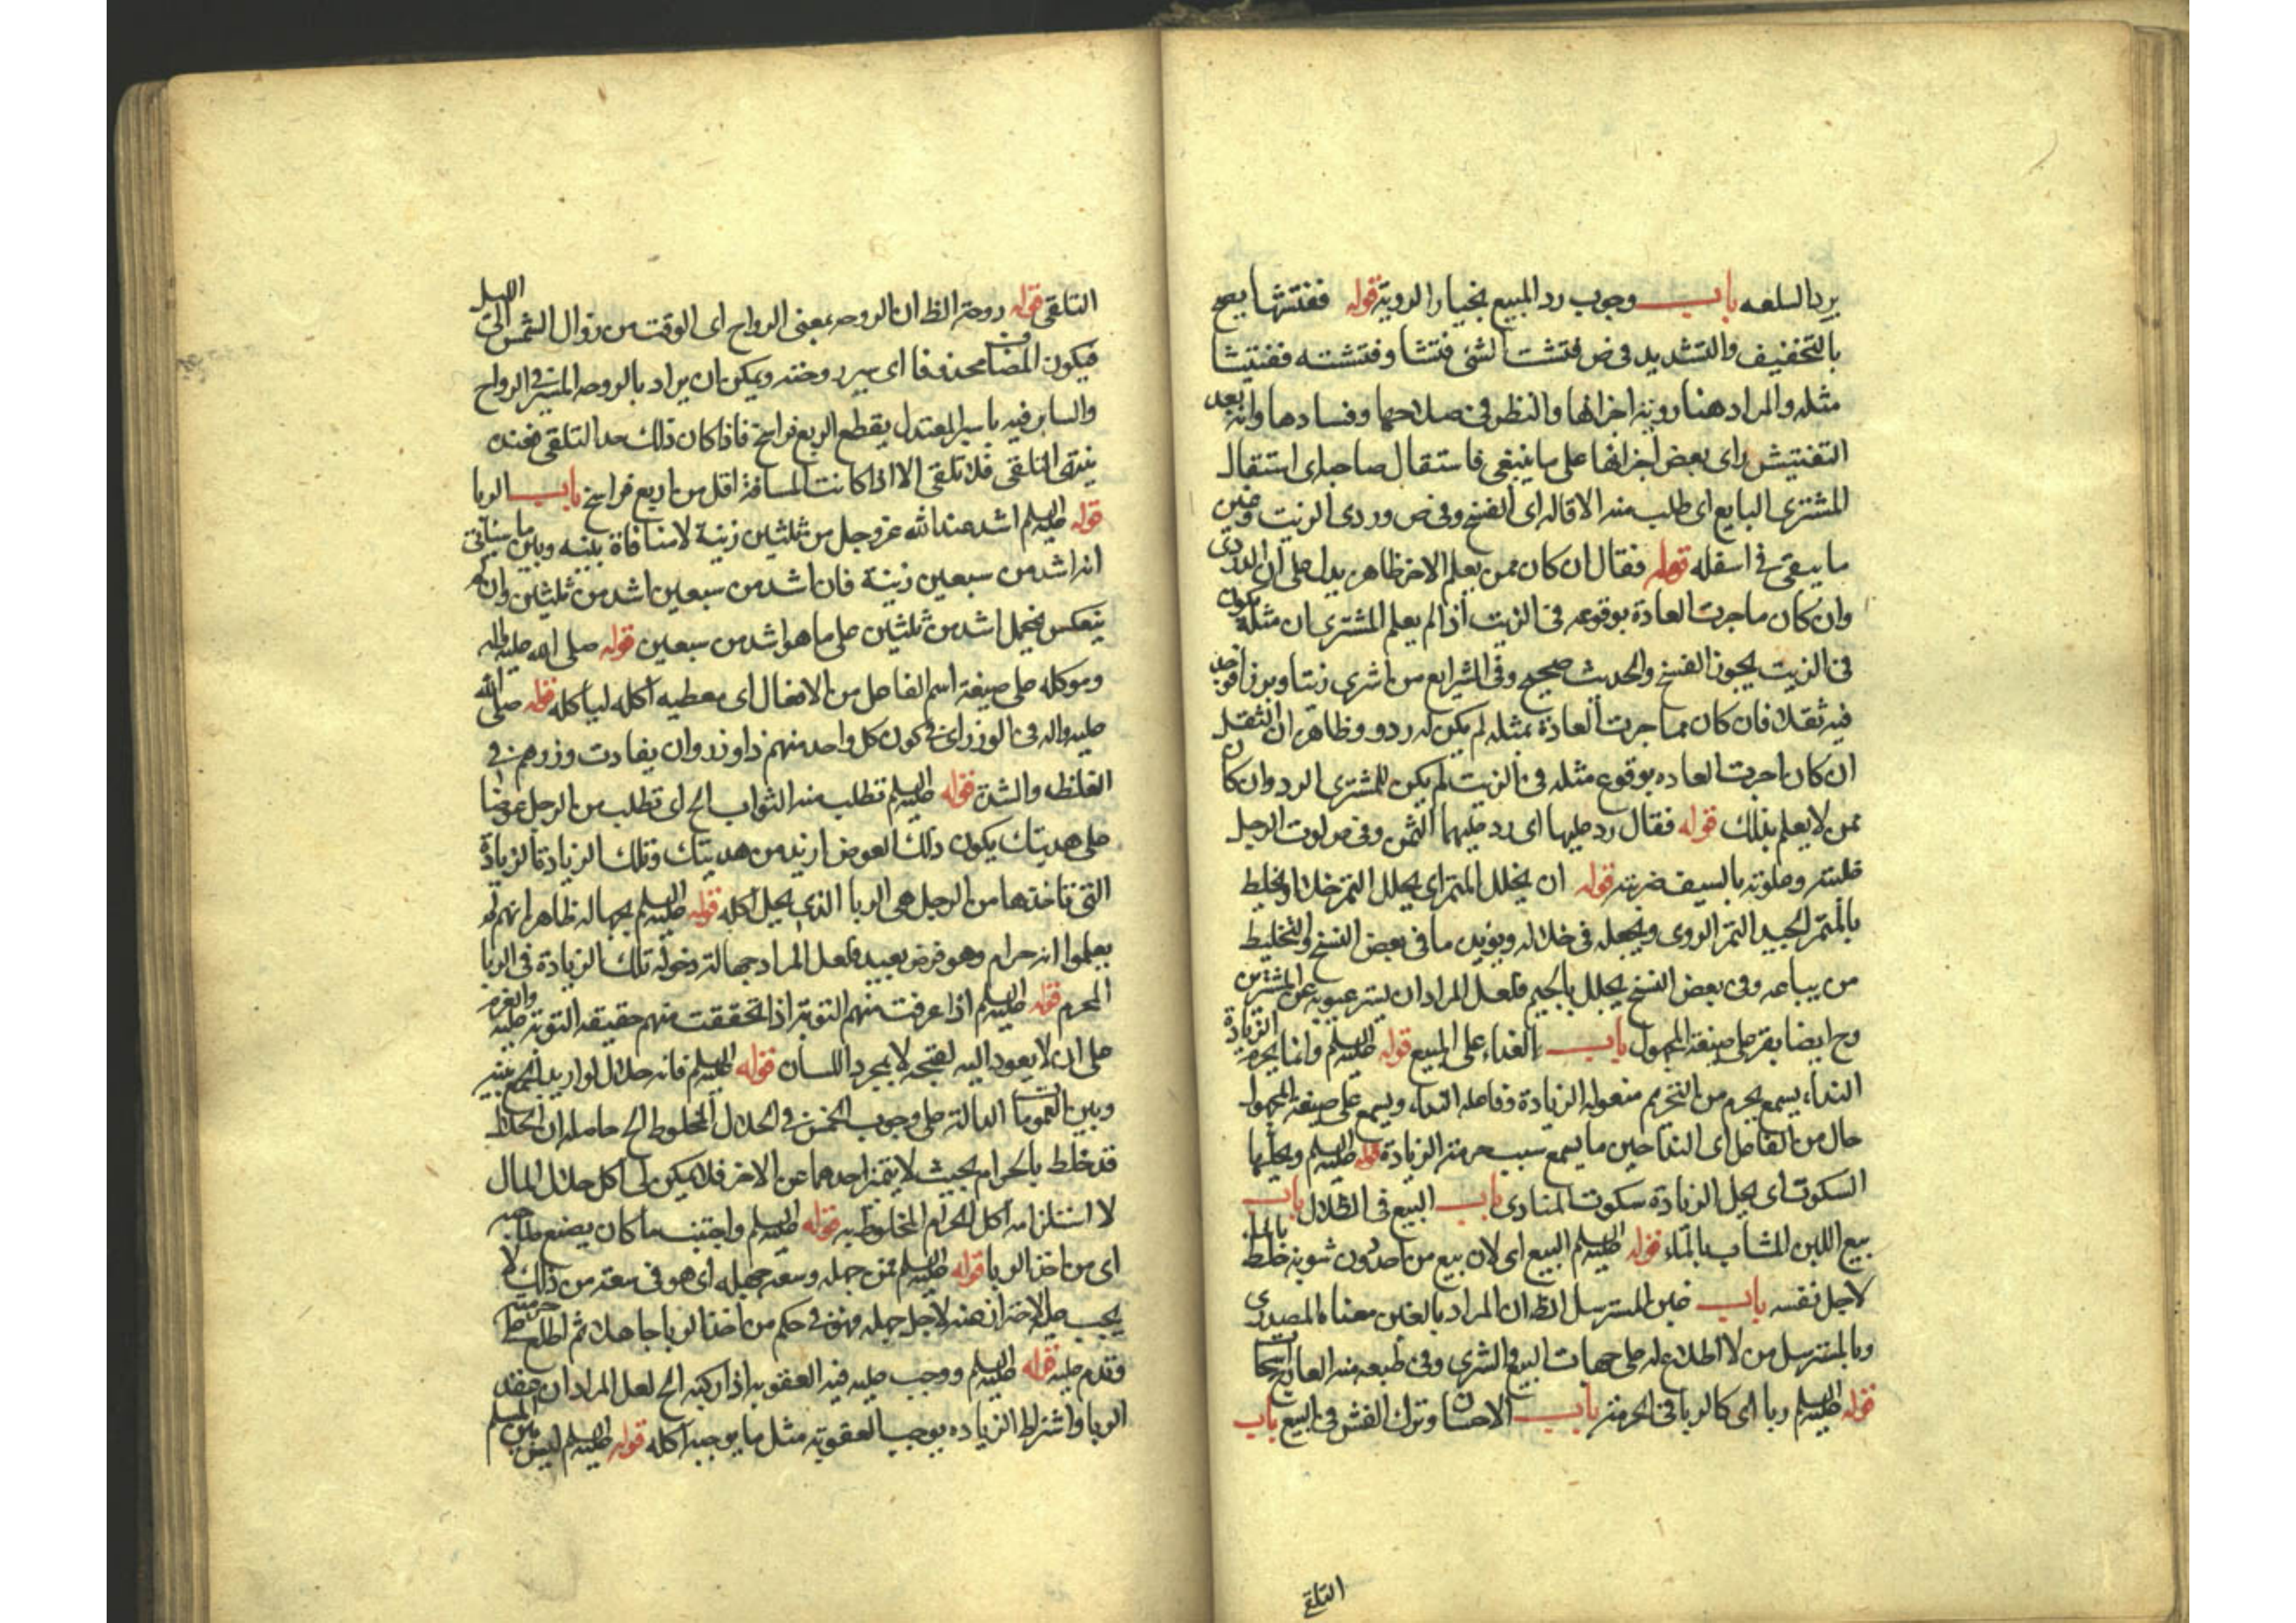 يرد السلعه باب وجوب رد المبيع بخيار الروية قوله ففتشها يصح
بالتخفيف والتشديد فى ص فتشت الشئ فتشا وفتشته تفتيشا
مثله والمراد هنا روية اجزائها والنظر فى صلاحها وفسادها وانه بعد
التفتيش راى بعض اجزائها على ما ينبغى فاستقال صاحبه اى استقال
المشترى البايع اى طلب منه الاقاله اى الفسخ وفى ص وردى الزيت وغيره
ما يبقى فى اسفله قوله فقال ان كان ممن يعلم الاخر ظاهر يدل على ان الدردى
وان كان ما جرت العادة بوقوعه فى الزيت اذا لم يعلم المشترى ان مثله يكون
فى الزيت يجوز الفسخ والحديث صحيح وفى الشرايع من اشترى زيتا او بزرا فوجد
فيه ثفلا فان كان مما جرت العادة بمثله لم يكن له رد وظاهر ان الثفل
ان كان جرت العاده بوقوع مثله فى الزيت لم يكن للمشترى الرد وان كان
ممن لا يعلم بذلك قوله فقال رد عليها اى رد عليهما الثمن وفى ص علوت الرجل
غلبته وعلوته بالسيف ضربته قوله ان يخلل التمر اى يخلل التمر خلا او يخلط
بالتمر الجيد التمر الردى ويجعله فى خلاله ويؤيده ما فى بعض النسخ والتخليط
من يباعه وفى بعض النسخ يجلل بالجيم فلعل المراد ان يستر عيوبه عن المشترين
وح ايضا يقرء على صيغة المجهول باب النداء على المبيع قوله عليه السلم وانما يحرم الزيادة
النداء يسمع يحرم من التحريم مفعوله الزيادة وفاعله النداء ويسمع على صيغة المجهول
حال من الفاعل اى النداء حين ما يسمع سبب حرمة الزيادة قوله عليه السلم ويحلها
السكوت اى يحل الزيادة سكوت المنادى باب البيع فى الظلال باب
بيع اللبن المشاب بالماء قوله عليه السلم البيع اى لان بيع من دون شوبه خلط بالماء
لاجل نفسه باب غبن المسترسل الظ ان المراد بالغبن معناه المصدرى
وبالمسترسل من لا اطلاع له على جهات البيع والشرى وفى طبعه منه العادات
قوله عليه السلم ربا اى كالربا فى الحرمة باب الاحسان وترك الغش فى البيع باب
التلقى
التلقى قوله روحة الظ ان الروحه بمعنى الرواح اى الوقت من زوال الشمس الى الليل
فيكون المضاف محذوفا اى سير روحته ويمكن ان يراد بالروحه السير فى الرواح
والساير فيه باسير المعتدل يقطع اربع فراسخ فاذا كان ذلك حد التلقى فعنده
ينتهى التلقى فلا تلقى الا اذا كانت المسافة اقل من اربع فراسخ باب الربا
قوله عليه السلم اشد عند الله عز وجل من ثلثين زنية لا منافاة بينه وبين ما سياتى
انه اشد من سبعين زنية فان اشد من سبعين اشد من ثلثين وان لم
ينعكس فيحمل اشد من ثلثين على ما هو اشد من سبعين قوله صلى الله عليه واله
وموكله على صيغة اسم الفاعل من الافعال اى معطيه آكله لياكله قوله صلى الله
عليه واله فى الوزر اى فى كون كل واحد منهم ذا وزر وان يفاوت وزرهم فى
الغلظه والشدة قوله عليه السلم تطلب منه الثواب الخ اى تطلب من الرجل عوضا
على هديتك يكون ذلك العوض ازيد من هديتك وتلك الزيادة الزيادة
التى تاخذها من الرجل هى الربا الذى يحل اكله قوله عليه السلم بجهاله ظاهر انهم لم
يعلموا انه حرام وهو فرض بعيد فلعل المراد جهالة دخول تلك الزيادة فى الربا
المحرم قوله عليه السلم اذا عرفت منهم التوبة اذا تحققت منهم حقيقه التوبة والعزم عليه
على ان لا يعود اليه لقبحه لا بمجرد اللسان قوله عليه السلم فانه حلال لو اريد الجمع بينه
وبين العمومات الدالة على وجوب الخمس فى الحلال المخلوط الخ حامله ان الحلال
قد خلط بالحرام بحيث لا يتميز احدهما عن الاخر فلا يمكن لى اكل حلال المال
لاستلزامه اكل الحرام المخلوط به قوله عليه السلم واجتنب ما كان يصنع صاحبه
اى من اخذ الربا قوله عليه السلم فمن جهله وسعه جهله اى هو فى سعة من ذلك لا
يجب عليه الاحتراز عنه لاجل جهله فهو فى حكم من اخذ الربا جاهلا ثم اطلع على حرمته
وقدم عليه قوله عليه السلم ووجب عليه فيه العقوبه اذا ركبه الخ لعل المراد ان عقد
الربا واشتراط الزياده يوجب العقوبة مثل ما يوجبه آكله قوله عليه السلم ليس بين المسلم